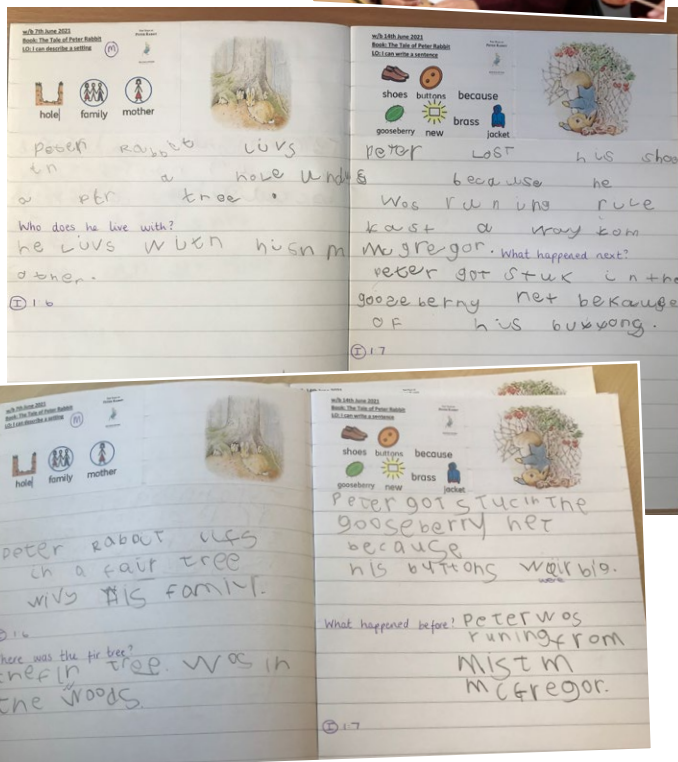 w/b 7th June 2021
Book: The Tale of Peter Rabbit
LO: I can describe a setting
M
hole
family
mother
Peter Rabbit livs
in a hole undr
a ptr tree.
Who does he live with?
he Livs with hisn m
other.
I 16
w/b 14th June 2021
Book: The Tale of Peter Rabbit
LO: I can write a sentence
shoes
buttons
because
gooseberry
new
brass
jacket
Peter LosT his shoo
s because he
Wos runing
fast a way
Mcgregor. What happened next?
Peter got stuk in the
goozeberry net bekause
OF his
I 17
w/b 7th June 2021
Book: The Tale of Peter Rabbit
LO: I can describe a setting
M
hole
family
mother
Peter Rabbit lifs
in a fair tree
wivy His family.
16
here was the fir tree?
the fir tree. Wos in
the woods.
w/b 14th June 2021
Book: The Tale of Peter Rabbit
LO: I can write a sentence
shoes
buttons
because
gooseberry
new
brass
jacket
Peter got stuc in The
gooseberry net
because
his buttons wair big.
were
What happened before? Peter wos
runing from
Mistm
McGregor.
I 17